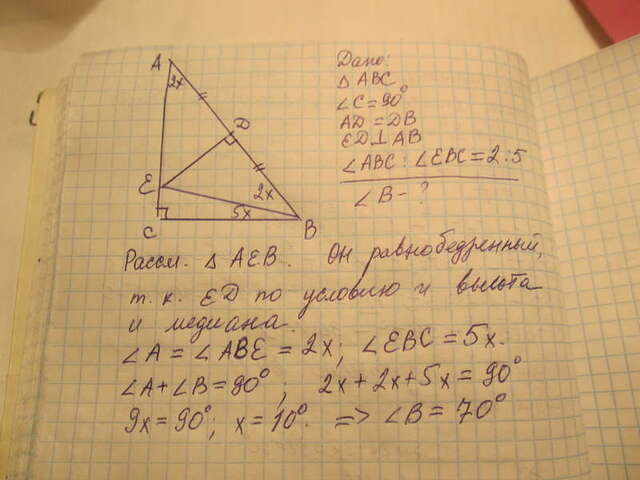 A
2x
D
E
2x
5x
C
B
Дано:
△ ABC
∠C = 90°
AD = DB
ED ⊥ AB
∠ABC : ∠EBC = 2 : 5
∠B - ?
Рассм. △ AEB. Он равнобедренный,
т.к. ED по условию и высота
и медиана.
∠A = ∠ABE = 2x; ∠EBC = 5x.
∠A + ∠B = 90°; 2x + 2x + 5x = 90°
9x = 90°; x = 10°. => ∠B = 70°